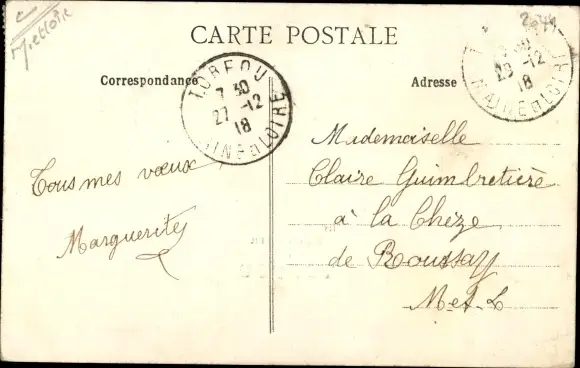 M. et Loire
2674
CARTE POSTALE
Correspondance
Adresse
TORFOU
7 30
27 -12
18
MAINE ET LOIRE
28 -12
18
MAINE ET LOIRE
Tous mes vœux
Marguerite
Mademoiselle
Claire Guimbretière
à la Chèze
de Roussay
M-et-L